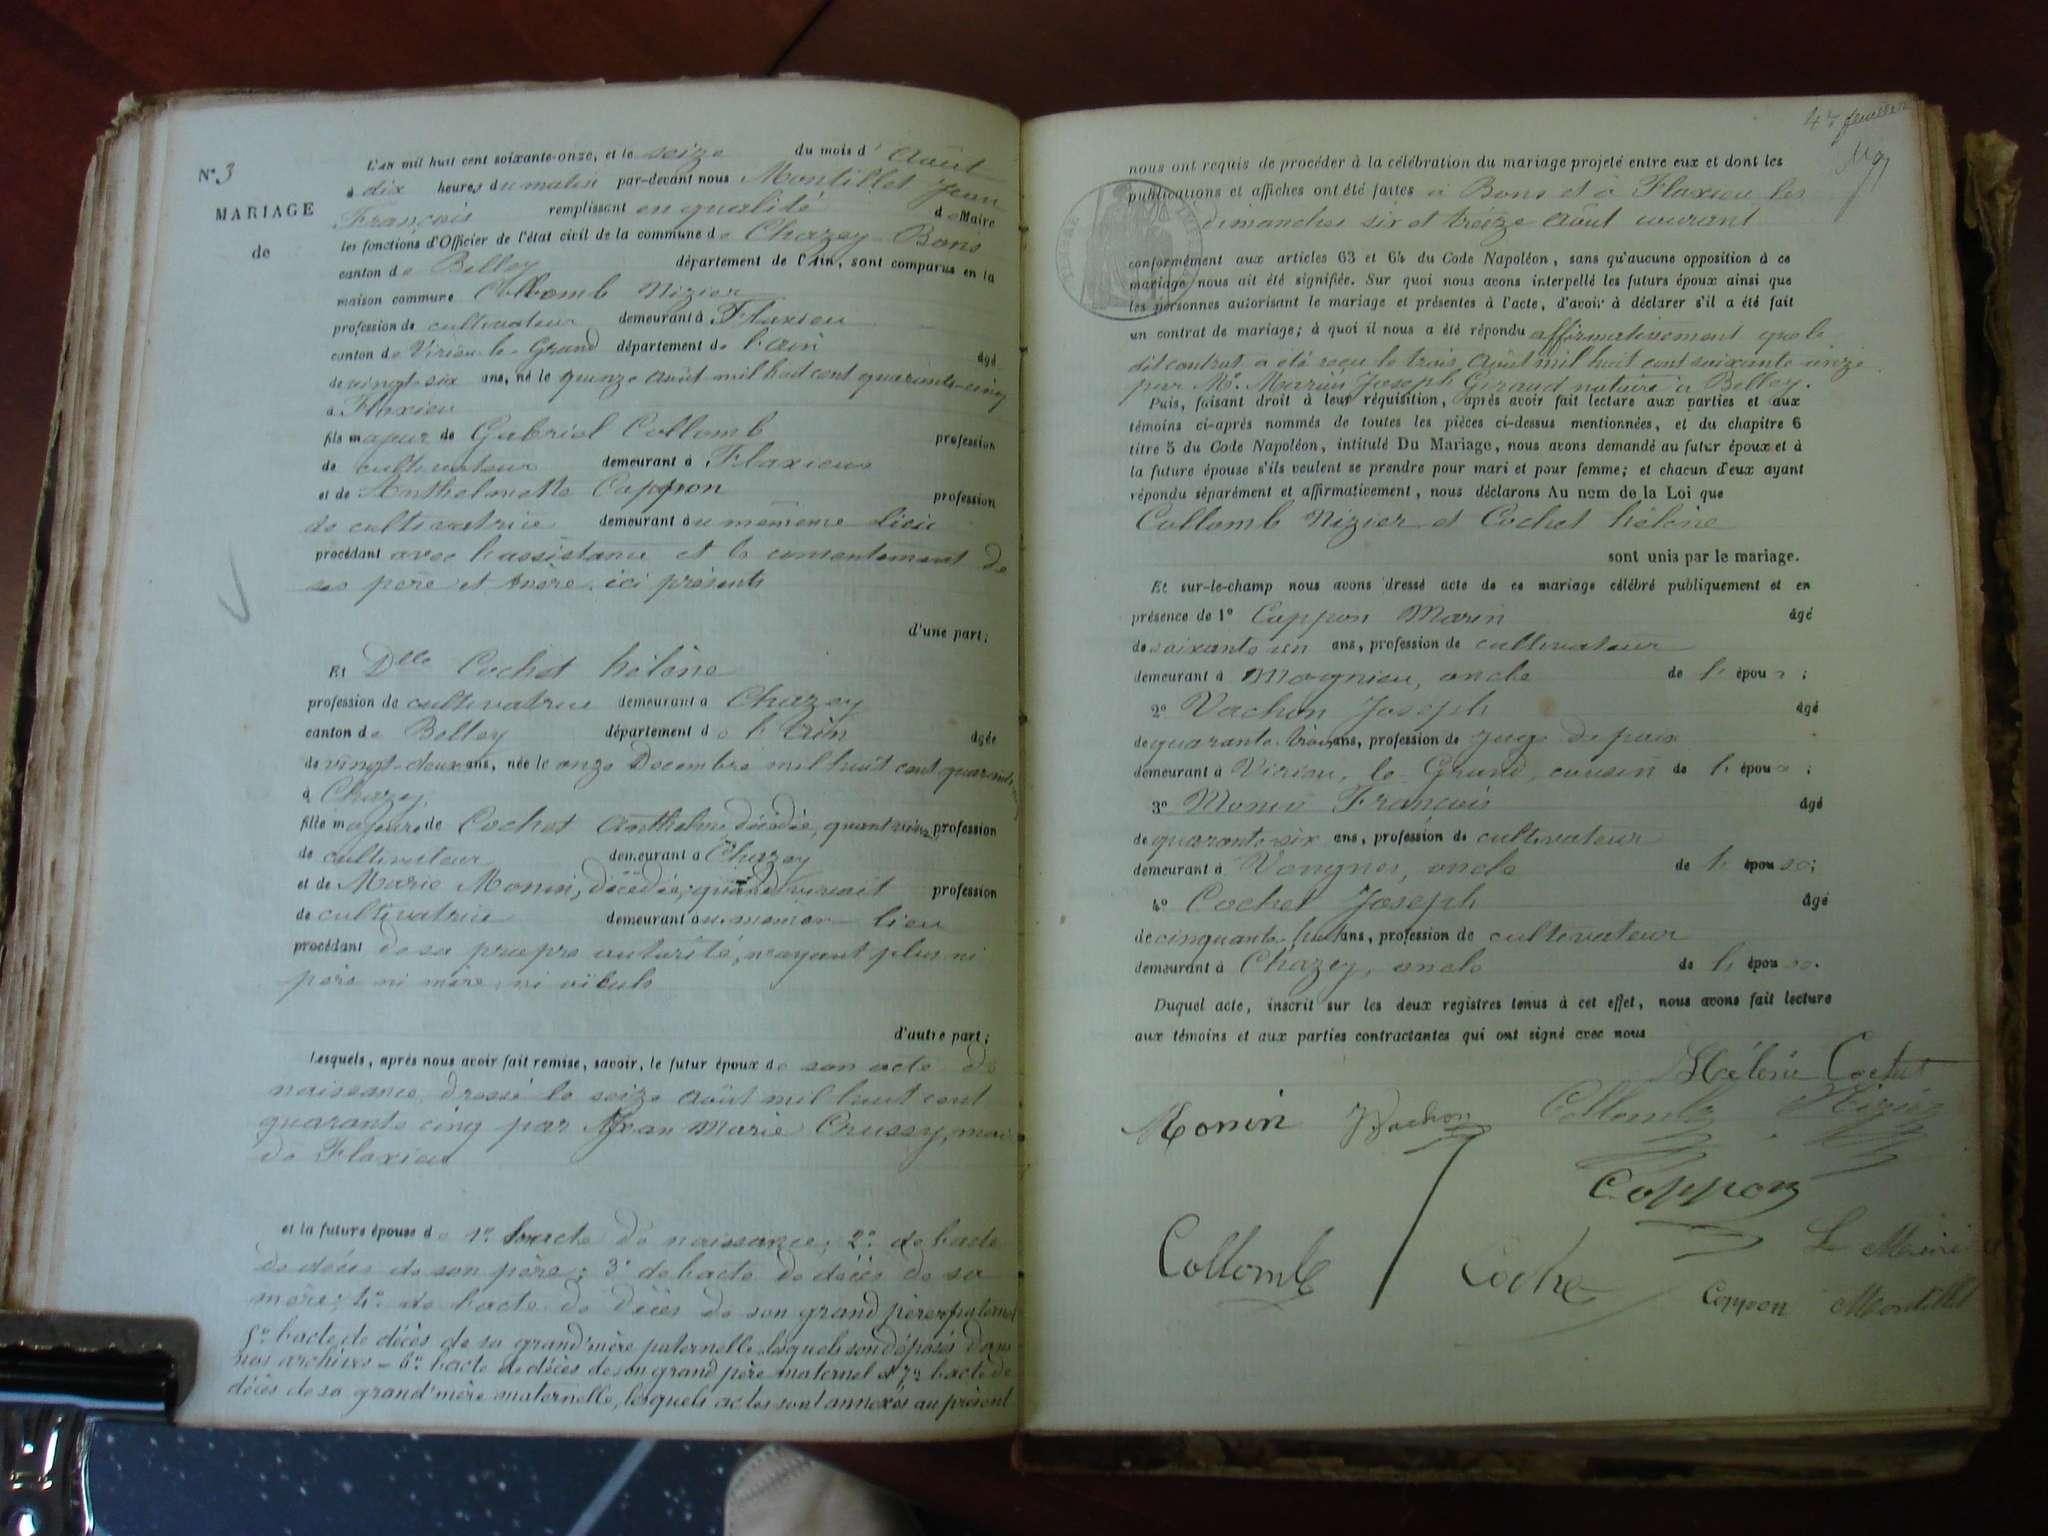 N° 3
MARIAGE
de
L'an mil huit cent soixante-onze, et le seize du mois d' Août
à dix heures du matin par-devant nous Montillet Jean
François remplissant en qualité de Maire
les fonctions d'Officier de l'état civil de la commune de Chazey-Bons
canton de Belley département de l'Ain, sont comparus en la
maison commune Collomb Nizier
profession de cultivateur demeurant à Flaxieu
canton de Virieu-le-Grand département de l'Ain âgé
de vingt-six ans, né le quinze août mil huit cent quarante-cinq
à Flaxieu
fils majeur de Gabriel Collomb profession
de cultivateur demeurant à Flaxieu
et de Anthelmette Cappon profession
de cultivatrice demeurant au mêmeme lieu
procédant avec l'assistance et le consentement de
ses père et mère ici présents
d'une part;
Et Dlle Cochet hélène
profession de cultivatrice demeurant à Chazey
canton de Belley département de l'Ain âgée
de vingt-deux ans, née le onze Décembre mil huit cent quarante
à Chazey
fille majeure de Cochet Anthelme décédé, quand vivait profession
de cultivateur demeurant à Chazey
et de Marie Monin, décédée, quand vivait profession
de cultivatrice demeurant au même lieu
procédant de sa propre autorité, n'ayant plus ni
père ni mère, ni aïeuls
d'autre part;
Lesquels, après nous avoir fait remise, savoir, le futur époux de son acte de
naissance dressé le seize août mil huit cent
quarante cinq par Jean Marie Crussy, mai
de Flaxieu
et la future épouse de 1° l'acte de naissance; 2° de l'acte
de décès de son père; 3° de l'acte de décès de sa
mère; 4° de l'acte de décès de son grand père paternel
5° l'acte de décès de sa grand'mère paternelle lesquels sont déposés dans
nos archives - 6° l'acte de décès de son grand père maternel et 7° l'acte de
décès de sa grand'mère maternelle, lesquels actes sont annexés au présent
47 feuillet
nous ont requis de procéder à la célébration du mariage projeté entre eux et dont les
publications et affiches ont été faites à Bons et à Flaxieu les
dimanches six et treize août courant
conformément aux articles 63 et 64 du Code Napoléon, sans qu'aucune opposition à ce
mariage nous ait été signifiée. Sur quoi nous avons interpellé les futurs époux ainsi que
les personnes autorisant le mariage et présentes à l'acte, d'avoir à déclarer s'il a été fait
un contrat de mariage; à quoi il nous a été répondu affirmativement que le
dit contrat a été reçu le trois août mil huit cent soixante-onze
par Me. Marin Joseph Giraud notaire à Belley.
Puis, faisant droit à leur réquisition, après avoir fait lecture aux parties et aux
témoins ci-après nommés de toutes les pièces ci-dessus mentionnées, et du chapitre 6
titre 5 du Code Napoléon, intitulé Du Mariage, nous avons demandé au futur époux et à
la future épouse s'ils veulent se prendre pour mari et pour femme; et chacun d'eux ayant
répondu séparément et affirmativement, nous déclarons Au nom de la Loi que
Collomb Nizier et Cochet hélène
sont unis par le mariage.
Et sur-le-champ nous avons dressé acte de ce mariage célébré publiquement et en
présence de 1° Cappon Marin âgé
de soixante un ans, profession de cultivateur
demeurant à Magnieu, oncle de l'époux;
2° Vachon Joseph âgé
de quarante-trois ans, profession de juge de paix
demeurant à Virieu-le-Grand, cousin de l'époux;
3° Monin François âgé
de quarante-six ans, profession de cultivateur
demeurant à Vongnes, oncle de l'épouse;
4° Cochet Joseph âgé
de cinquante-huit ans, profession de cultivateur
demeurant à Chazey, oncle de l'épouse.
Duquel acte, inscrit sur les deux registres tenus à cet effet, nous avons fait lecture
aux témoins et aux parties contractantes qui ont signé avec nous
Hélène Cochet
Monin JVachon Collomb Nizier
Cappon
Collomb Cochet Cappon Le Maire
Montillet